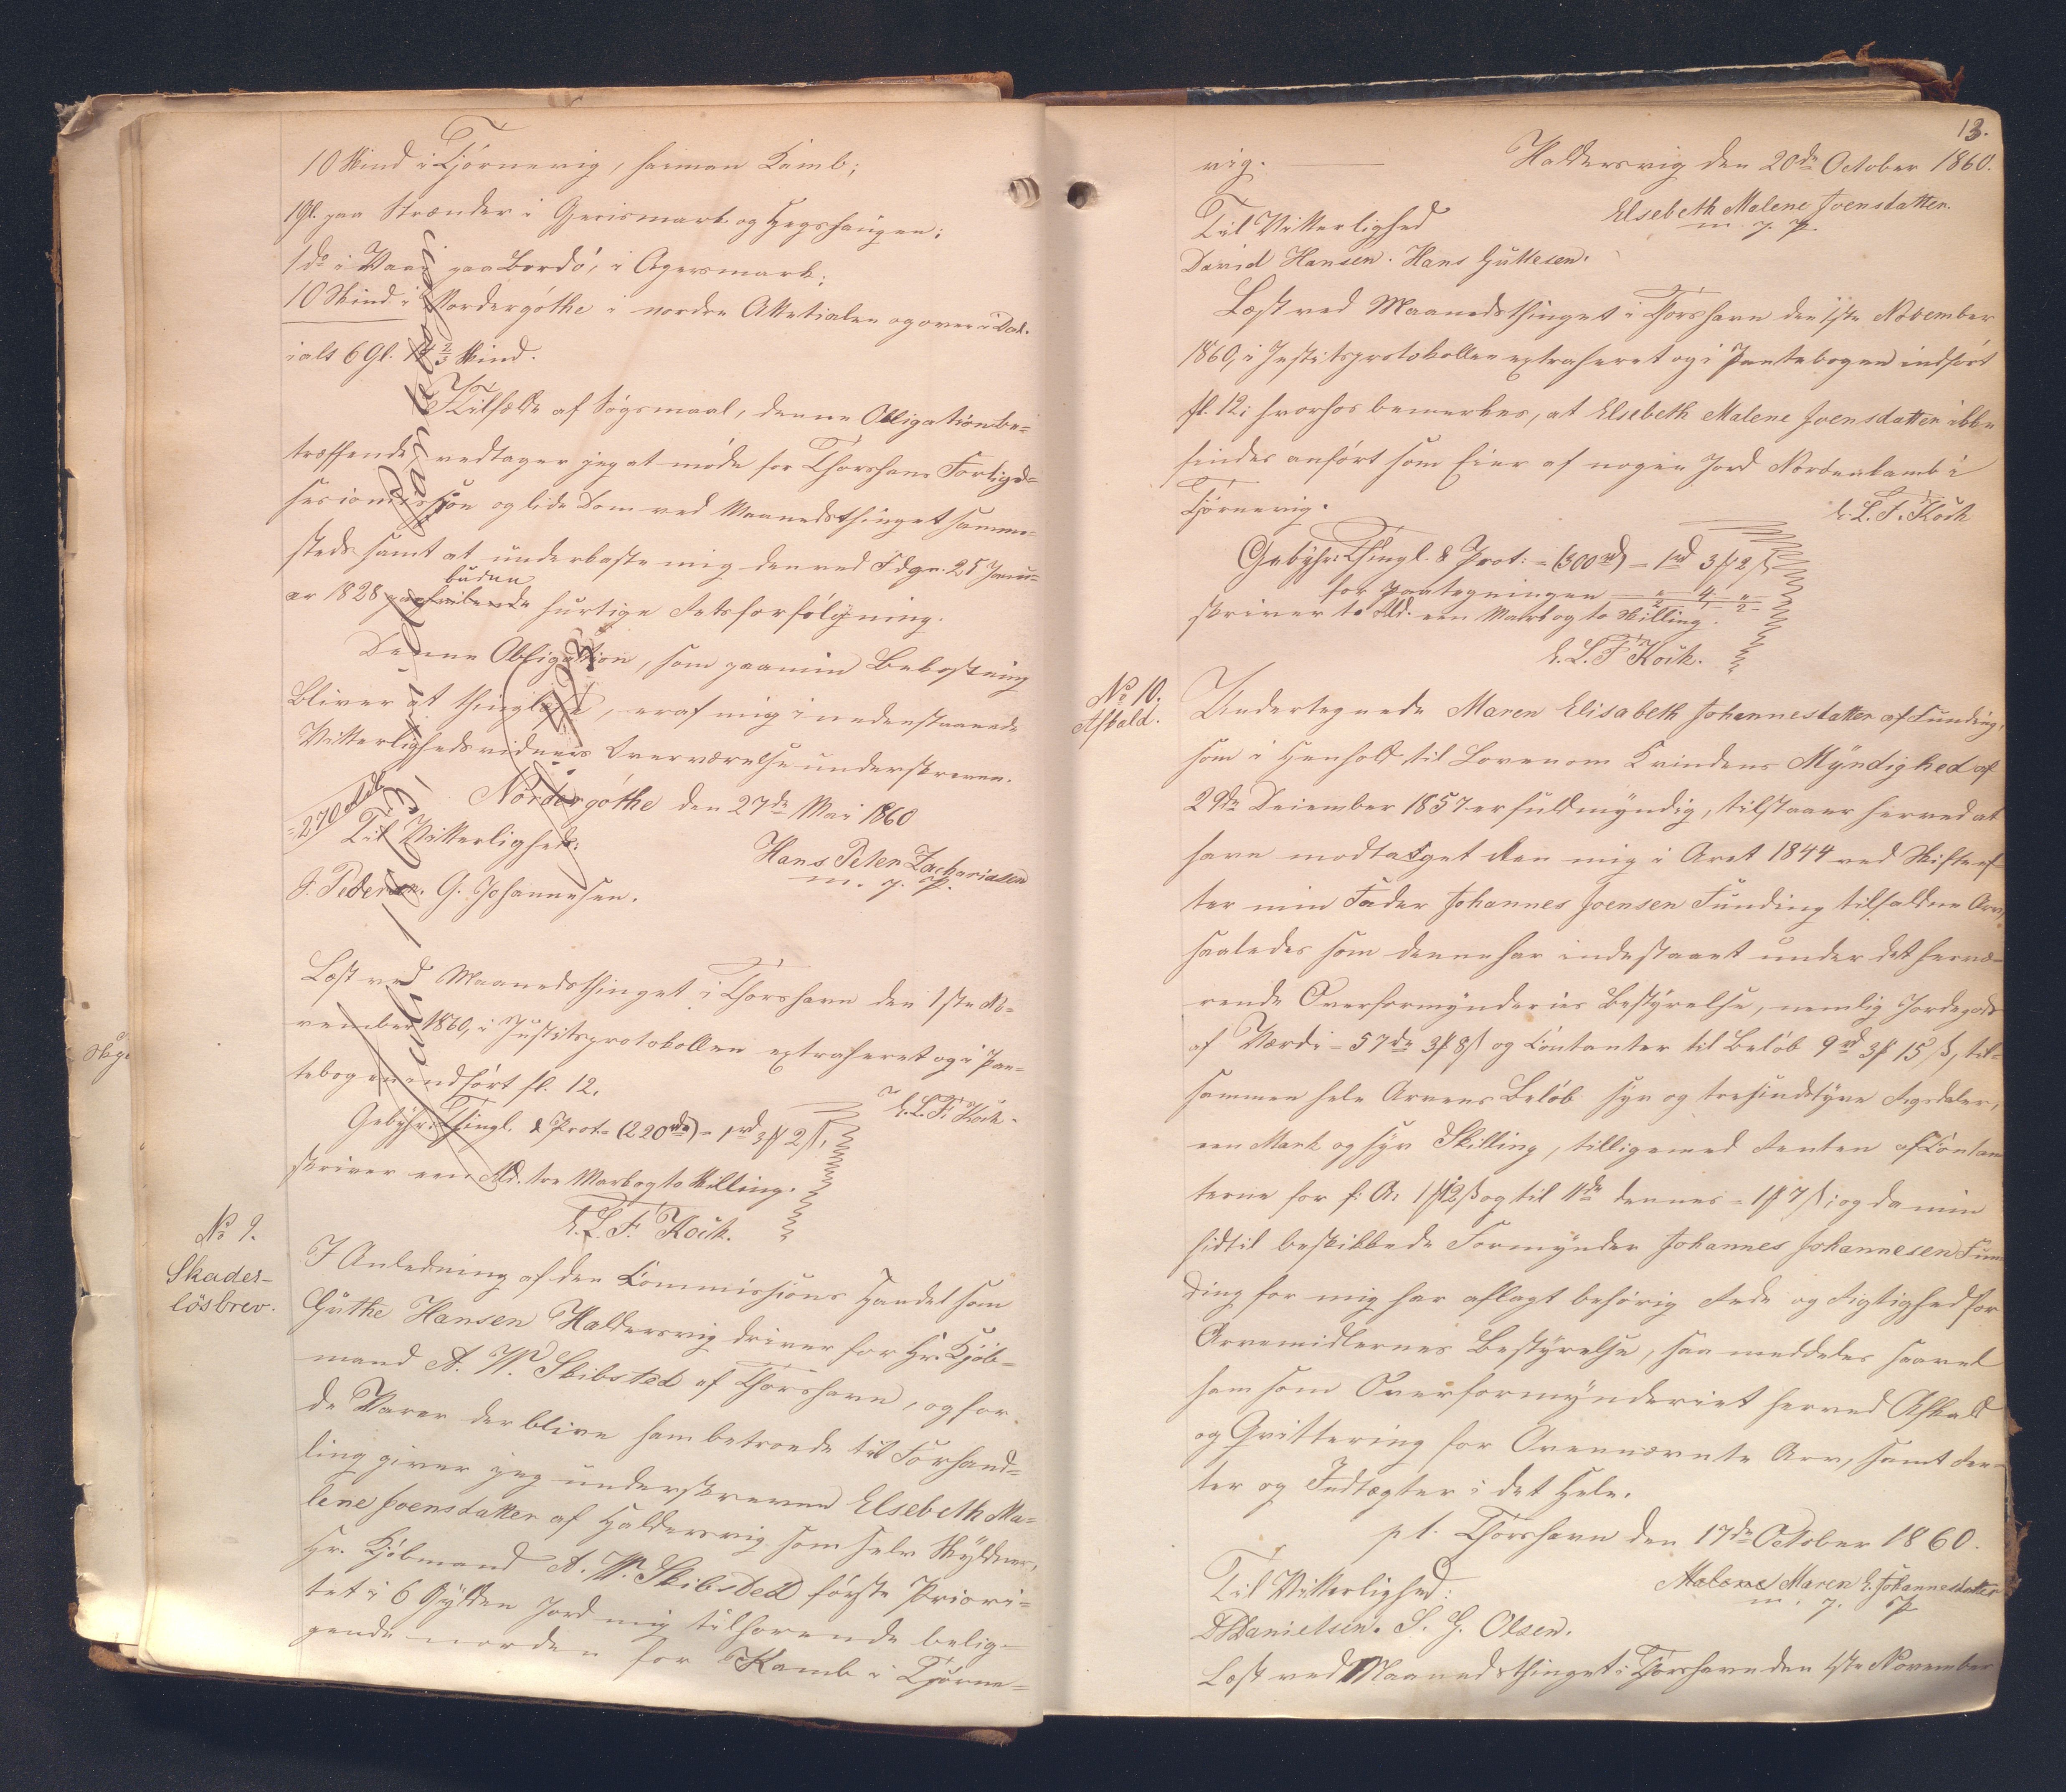 10 Skind i Tjörnevig, heiman Kamb;
1 Gl. paa Strænder i Gerismark og Hegshaugen;
1 do i Vaag paa Bordö, i Agersmark;
10 Skind i Nordergöthe i nordre
ialt 6 Gl. 1 2/3 Skind.
I Tilfælde af Sögsmaal, denne Obligation be-
træffende, vedtager jeg at möde for Thorshavns Forligel-
sescommission og lide Dom ved Maanedsthinget samme-
steds samt at underkaste mig den ved Fdgn. 25 Janu-
ar 1828 paabudne hurtige Retsforfölgning.
Denne Obligation, som paa min Bekostning
bliver at thinglæse, er af mig i nedenstaaende
Vitterlighedsvidners Overværelse underskreven.
Nordergöthe den 27de Mai 1860
Til Vitterlighed:
Hans Peter Zachariasen
m. p.
J. Pedersen. G. Johannesen.
Læst ved Maanedsthinget i Thorshavn den 1ste No-
vember 1860, i Justitsprotokollen extraheret og i Pan-
tebogen indfört fl. 12.
E. L. F. Koch.
Gebyhr: Thingl. & Prot. (220 rd) = 1 rd 3 ꝟ 2 ß,
skriver een Rd. tre Mark og to Skilling.
E. L. F. Koch.
No 9.
Skades-
lösbrev.
I Anledning af den Commissions Handel som
Guthe Hansen Haldersvig driver for Hr. Kjöb-
mand A. W. Skibsted af Thorshavn, og for
de Varer der blive ham betroede til Forhand-
ling giver jeg underskrevne Elsebeth Ma-
lene Joensdatter af Haldersvig som selv Skyldner,
Hr. Kjöbmand A. W. Skibsted förste Priori-
tet i 6 Gylden Jord mig tilhørende belig-
gende norden for Kamb i Tjörne-
13.
vig.
Haldersvig den 20de October 1860.
Til Vitterlighed
Elsebeth Malene Joensdatter
m. p.
David Hansen. Hans Guttesen.
Læst ved Maanedsthinget i Thorshavn den 1ste November
1860, i Justitsprotokollen extraheret og i Pantebogen indfört
fl. 12; hvorhos bemerkes, at Elsebeth Malene Joensdatter ikke
findes anfört som Eier af nogen Jord Nordenkamb i
Tjörnevig.
E. L. F. Koch
Gebyhr: Thingl. & Prot. = (300 rd) = 1 rd 3 ꝟ 2 ß
for Paategningen " 4 "
2 1 2
skriver to Rd. een Mark og to Skilling.
E. L. F. Koch.
No 10.
Afkald.
Undertegnede Maren Elisabeth Johannesdatter af Funding,
som i Henhold til Loven om Kvindens Myndighed af
29de December 1857 er fuldmyndig, tilstaaer herved at
have modtaget den mig i Aret 1844 ved Skifte ef-
ter min Fader Johannes Joensen Funding tilfaldne Arv,
saaledes som denne har indestaaet under det hervæ-
rende Overformynderies Bestyrelse, nemlig Jordegods
af Værdi = 57 rd 3 ꝟ 8 ß og Contanter til Belöb 9 rd 3 ꝟ 15 ß, til-
sammen hele Arvens Belöb syv og tresindstyve Rigsdaler,
een Mark og syv Skilling, tilligemed Renten af Contan-
terne for f. A. 1 ꝟ 12 ß og til 11de dennes = 1 ꝟ 7 ß; og da min
hidtil beskikkede Formynder Johannes Johannesen Fun-
ding for mig har aflagt behörig Rede og Rigtighed for
Arvemidlernes Bestyrelse, saa meddeles saavel
ham som Overformynderiet herved Afkald
og Qvittering for Ovennævnte Arv, samt Ren-
ter og Indtægter i det Hele.
pt. Thorshavn den 17de October 1860.
Til Vitterlighed:
Malene Maren E. Johannesdatter
m. p.
D Danielsen. S. G. Olsen.
Læst ved Maanedsthinget i Thorshavn den 1ste November